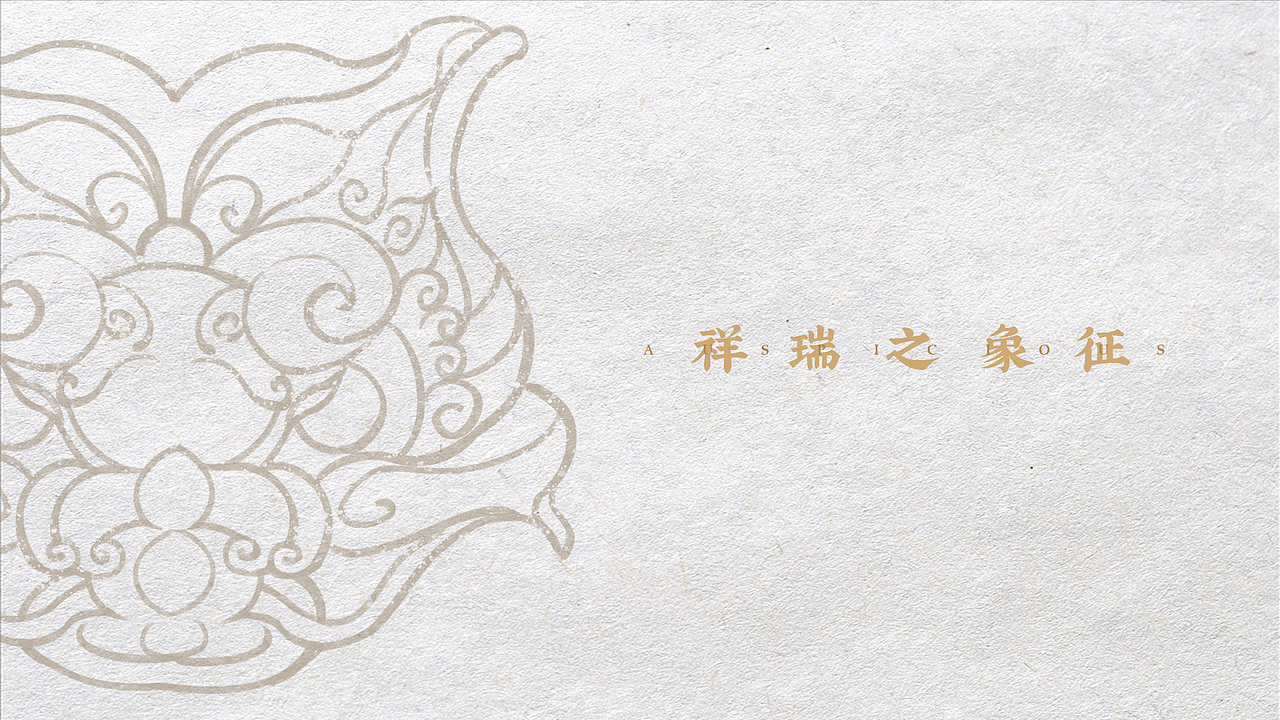 祥瑞之象征
AUSPICIOUS